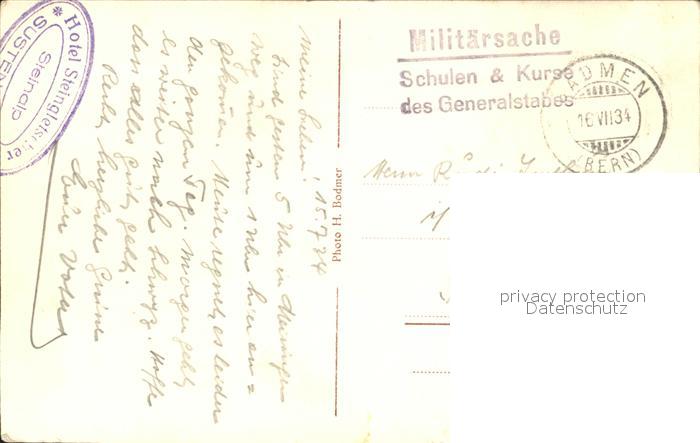 Hotel Steingletscher
Steinalp
SUSTEN
Meine Lieben! 15.7.34
Sind gestern 5 Uhr in Meiringen
weg und um 1 Uhr hier an=
gekommen. Heute regnet es leider
den ganzen Tag. Morgen geht
es weiter nach Schwyz. Hoffe
dass alles gut geht.
Recht herzliche Grüsse
Euer Vater
Photo H. Bodmer
Militärsache
Schulen & Kurse
des Generalstabes
GADMEN
16 VII 34
(BERN)
Herrn
privacy protection
Datenschutz